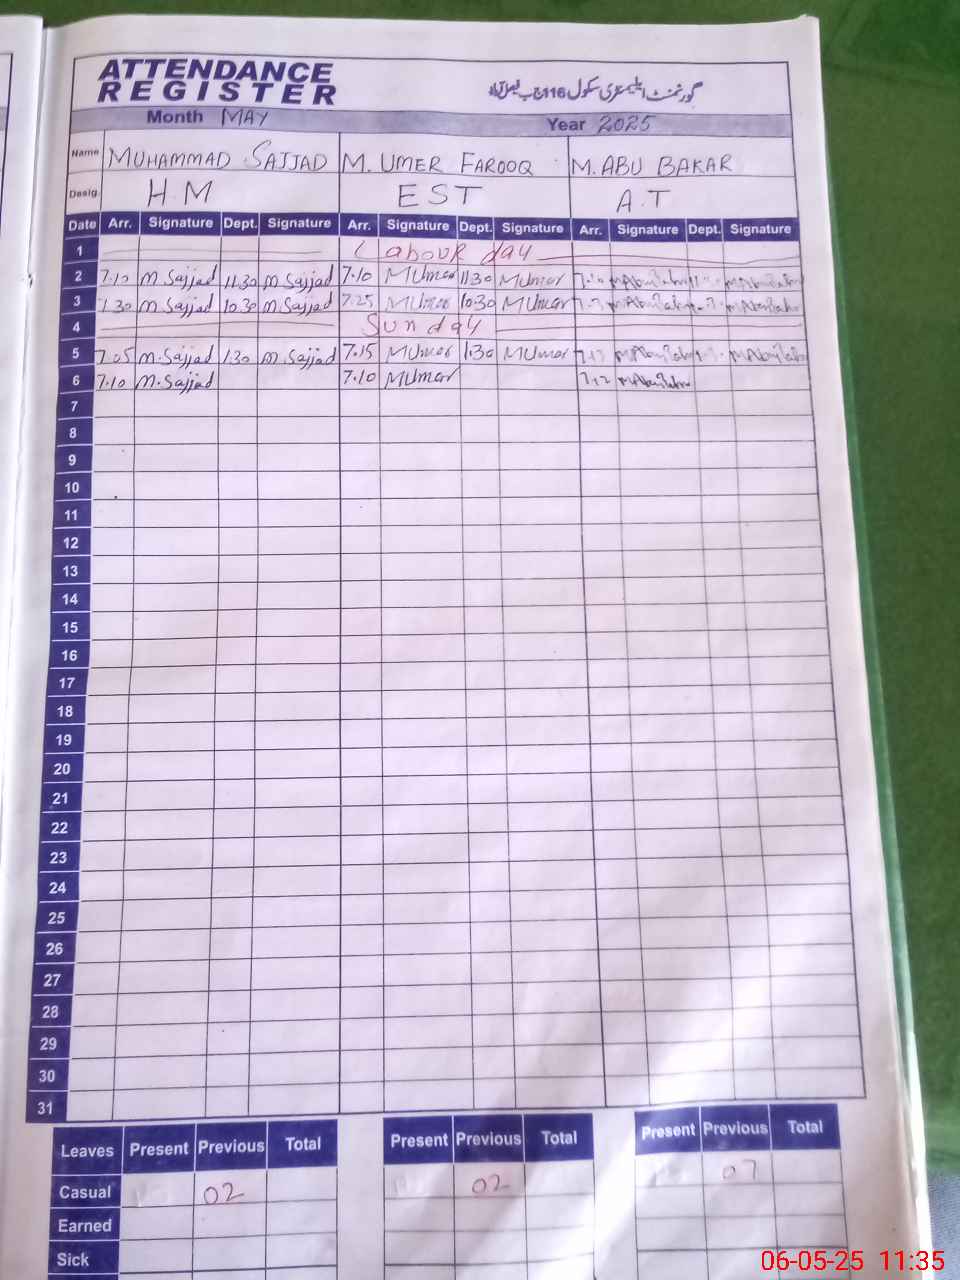 ATTENDANCE
REGISTER
گورنمنٹ ایلیمنٹری سکول 116 ج ب فیصل آباد
Month MAY Year 2025
Name MUHAMMAD SAJJAD M. UMER FAROOQ M. ABU BAKAR
Desig. H.M EST A.T
Date Arr. Signature Dept. Signature Arr. Signature Dept. Signature Arr. Signature Dept. Signature
1 Labour day
2 7.10 M.Sajjad 11.30 M.Sajjad 7.10 MUmar 11.30 MUmar
3 7.30 M.Sajjad 10.30 M.Sajjad 7.25 MUmar 10.30 MUmar
4 Sunday
5 7.05 M.Sajjad 1.30 M.Sajjad 7.15 MUmar 1.30 MUmar
6 7.10 M.Sajjad 7.10 MUmar 7.12
7
8
9
10
11
12
13
14
15
16
17
18
19
20
21
22
23
24
25
26
27
28
29
30
31
Leaves Present Previous Total Present Previous Total Present Previous Total
Casual 02 02 07
Earned
Sick
06-05-25 11:35